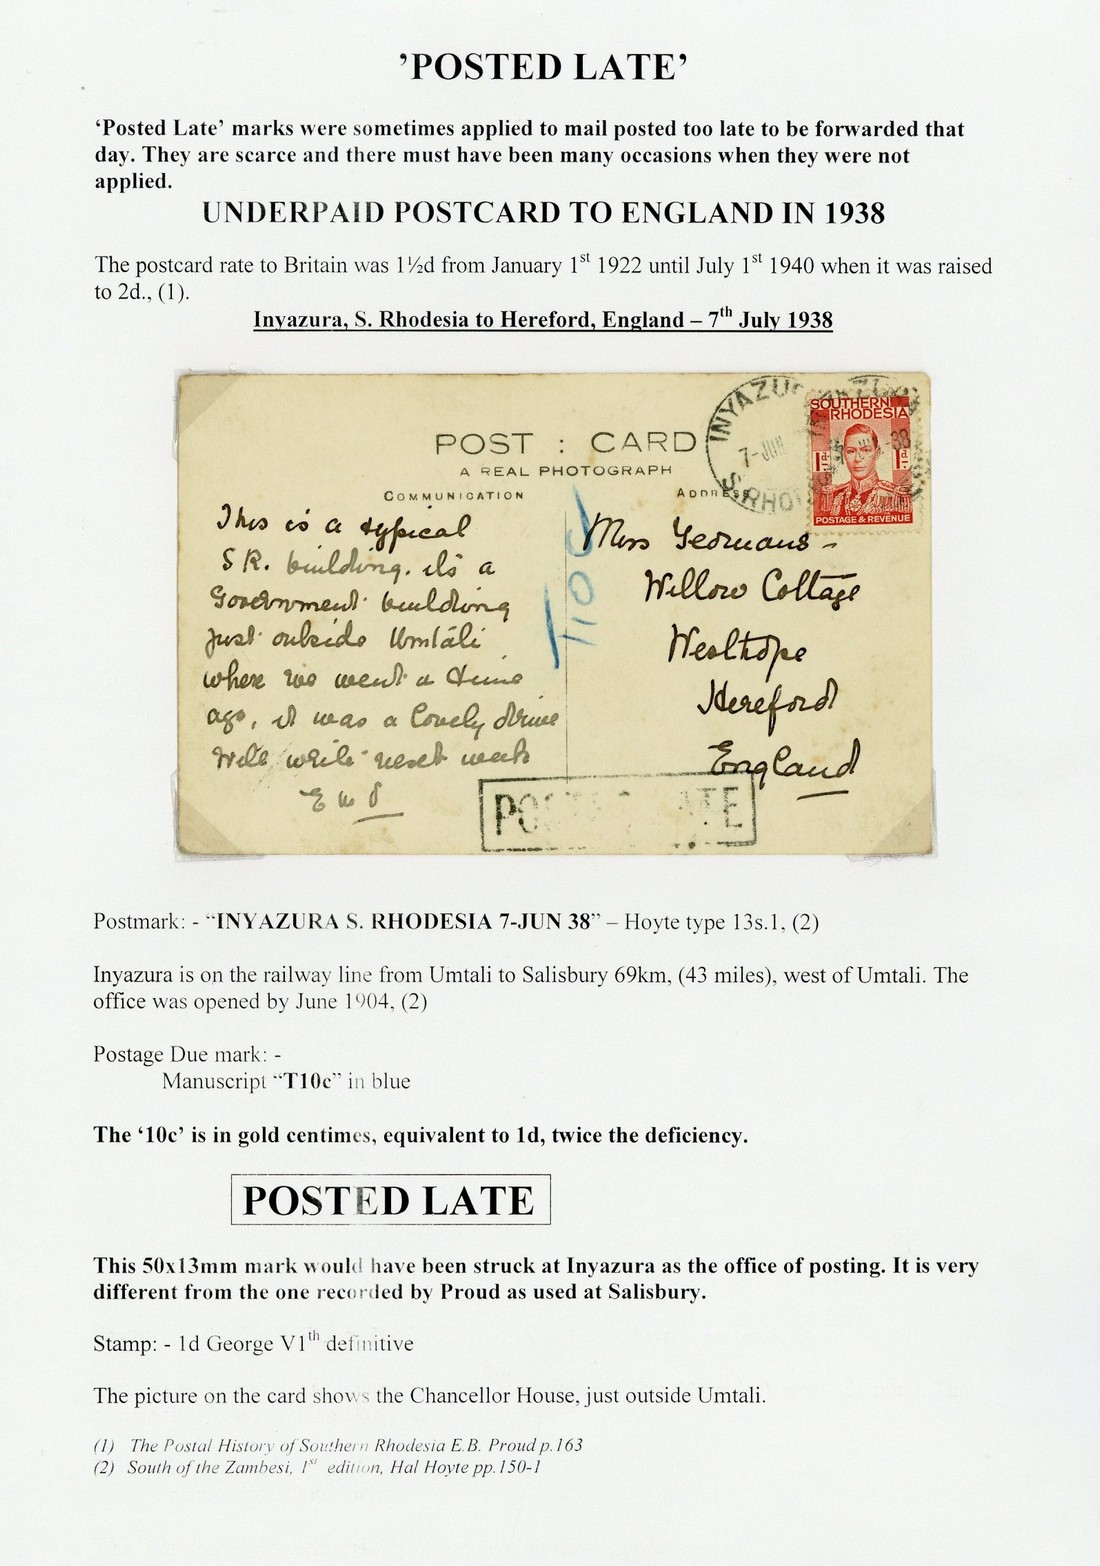 ’POSTED LATE’
‘Posted Late’ marks were sometimes applied to mail posted too late to be forwarded that
day. They are scarce and there must have been many occasions when they were not
applied.
UNDERPAID POSTCARD TO ENGLAND IN 1938
The postcard rate to Britain was 1½d from January 1st 1922 until July 1st 1940 when it was raised
to 2d., (1).
Inyazura, S. Rhodesia to Hereford, England – 7th July 1938
POST : CARD
A REAL PHOTOGRAPH
COMMUNICATION
ADDRESS
INYAZU
7-JUN
S. RHO
38
SOUTHERN
RHODESIA
1d 1d
POSTAGE & REVENUE
This is a typical
S R. building. its a
Government building
just outside Umtali
where we went a time
ago, it was a lovely drive
Will write next week
T10c
Miss Yeomans -
Willow Cottage
Westhope
Hereford
England
POSTED LATE
Postmark: - “INYAZURA S. RHODESIA 7-JUN 38” – Hoyte type 13s.1, (2)
Inyazura is on the railway line from Umtali to Salisbury 69km, (43 miles), west of Umtali. The
office was opened by June 1904, (2)
Postage Due mark: -
Manuscript “T10c” in blue
The ‘10c’ is in gold centimes, equivalent to 1d, twice the deficiency.
POSTED LATE
This 50x13mm mark would have been struck at Inyazura as the office of posting. It is very
different from the one recorded by Proud as used at Salisbury.
Stamp: - 1d George V1th definitive
The picture on the card shows the Chancellor House, just outside Umtali.
(1) The Postal History of Southern Rhodesia E.B. Proud p.163
(2) South of the Zambesi, 1st edition, Hal Hoyte pp.150-1